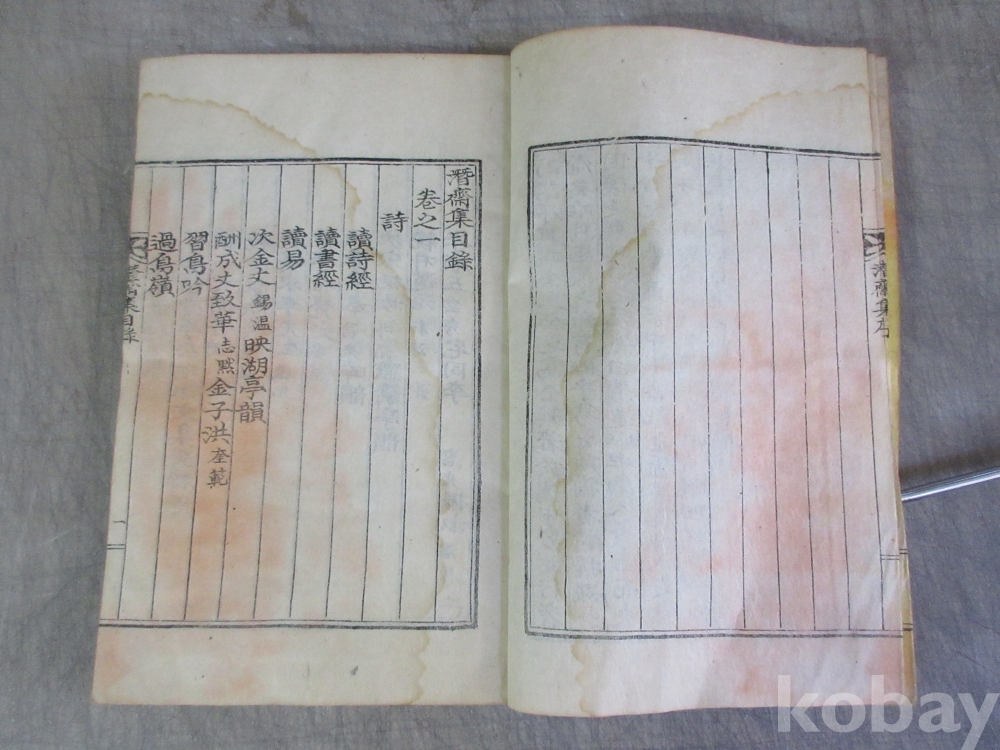 潛齋集序
潛齋集目錄
卷之一
詩
讀詩經
讀書經
讀易
次金丈錫溫映湖亭韻
酬成丈致華志㷡金子洪奎範
習鳥吟
過鳥嶺
集目錄
一
kobay